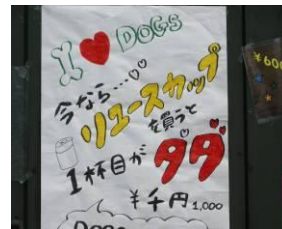 I ♥ DOGS
今なら…♡
リユースカップ
を買うと
1杯目が
タダ
¥千円 1,000
Dogs
¥600